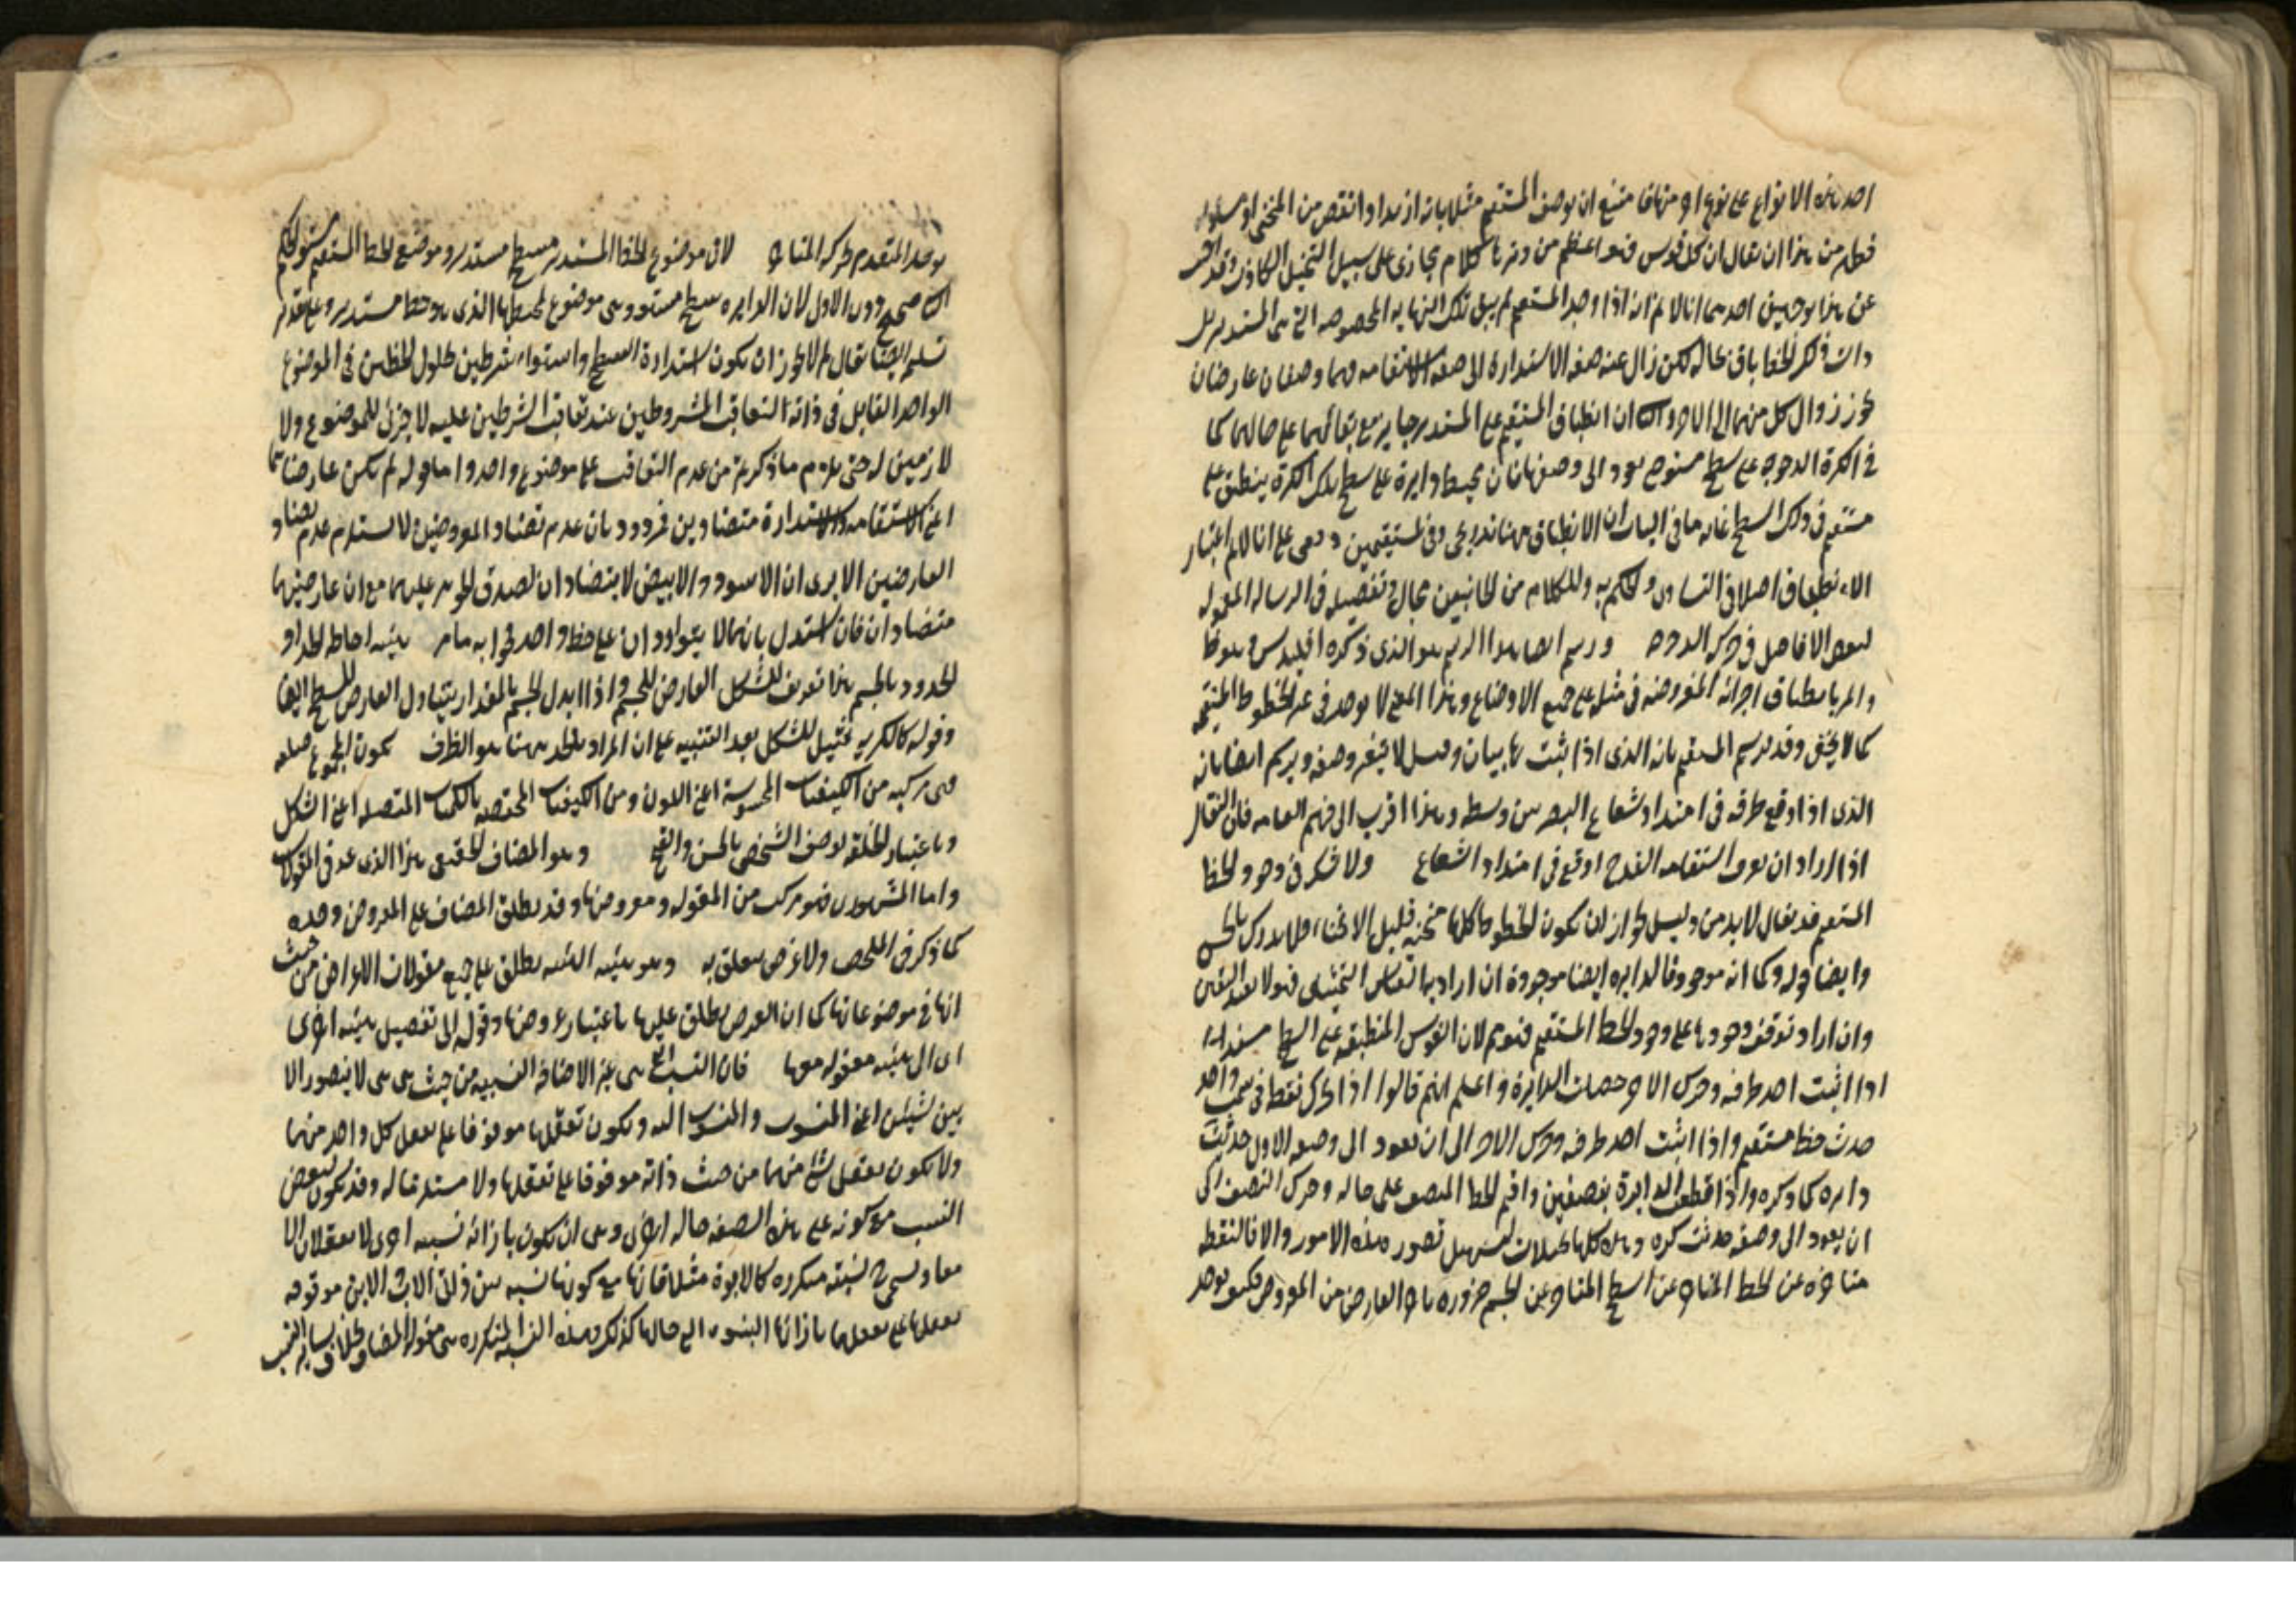 احد هذه الانواع على نوع اخر منها فامتنع ان يوصف المستقيم مثلا بانه ازيد او انقص من المنحنى او مساو له
فظهر من هذا ان يقال ان كل قوس فهو اعظم من وترها كلام مجازى على سبيل التخيل الكاذب وقد
عن هذا بوجهين احدهما انا لا نم انه اذا وجد المستقيم لم يبق تلك النهايه المخصوصه التى هى المستدير بل
ذات ذلك الخط باق بحاله لكن زال عنه صفه الاستدارة الى صفه الاستقامه فهما وصفان عارضان
يجوز زوال كل منهما الى الاخر والثانى ان انطباق المستقيم على المستدير جايز مع بقائهما على حالهما كما
فى الكرة المدحرجه على سطح مستو حتى يعود الى وضعها فان محيط دايرة على سطح تلك الكرة ينطبق على
مستقيم فى ذلك السطح غايه ما فى الباب ان الانطباق ههنا تدريجى وفى المستقيمين دفعى على انا لا نم اعتبار
الانطباق اصلا فى التساوى والحكم به وللكلام من الجانبين مجال وتفصيله فى الرساله المعموله
لبعض الافاضل فى حركه الدحرجه ورسم ايضا هذا الرسم هو الذى ذكره اقليدس وهو خط
كما لا يخفى وقد يرسم المستقيم بانه الذى اذا ثبت نهايتاه وفتل لا يتغير وضعه ويرسم ايضا بانه
الذى اذا وقع طرفه فى امتداد شعاع البصر ستر وسطه وهذا اقرب الى فهم العامه فان النقال
اذا اراد ان يعرف استقامه القدح اوقع فى امتداد الشعاع ولا شك فى وجود الخط
المستقيم قد يقال لا بد من دليل لجواز ان يكون الخطوط كلها منحنيه قليل الانحناء فلا يدرك بالحس
وايضا قوله وكما انه موجود فالدايره ايضا موجودة ان اراد به القياس التمثيلى فهو لا يفيد اليقين
وان اراد توقف وجودها على وجود الخط المستقيم فنوم لان القوس المنطبقه على السطح
اذا اثبت احد طرفيه وحرك الاخر حصلت الدايرة واعلم انهم قالوا اذا تحرك نقطه فى سمت واحد
حدث خط مستقيم واذا اثبت احد طرفيه وحرك الاخر الى ان يعود الى وضعه الاول حدثت
دايره كما ذكره واذا قطعت الدايرة بنصفين واقيم الخط المنصف على حاله وحرك النصف الى
ان يعود الى وضعه حدثت كره وهذه كلها تخيلات لتسهيل تصور هذه الامور والا فالنقطه
متاخره عن الخط المتاخر عن السطح المتاخر عن الجسم ضروره تاخر العارض من المعروض فكيف يوجد
يوجد المتقدم بحركه المتاخر لان موضوع الخط المستدير سطح مستدير وموضع الخط المستقيم مستو الحكم
الثانى صحيح دون الاول لان الدايره سطح مستو وهى موضوع لمحيطها الذى هو خط مستدير وعلى تقدير
تسليم ايضا يقال لم لا يجوز ان يكون استدارة السطح واستواءه شرطين لحلول الخطين فى الموضوع
الواحد القابل فى ذاته التعاقب المشروطين عند تعاقب الشرطين عليه لا جزئى للموضوع ولا
لازمين له حتى يلزم ما ذكرتم من عدم التعاقب على موضوع واحد واما قوله لم يكن عارضاهما
اعنى الاستقامه والاستدارة متضادين فمردود بان عدم تضاد المعروضين لا يستلزم عدم تضاد
العارضين الا يرى ان الاسود والابيض لا يتضادان لصدق الجوهر عليهما مع ان عارضيهما
متضادان فان استدل بانهما لا يتواردان على خط واحد فجوابه ما مر هيئه احاطه الحد او
الحدود بالجسم هذا تعريف للشكل العارض للجسم واذا ابدل الجسم بالمقدار يتناول العارض للسطح ايضا
وقوله كالكريه تمثيل للشكل بعد التنبيه على ان المراد بالحد ههنا هو الطرف يكون المجموع
هى مركبه من الكيفيات المحسوسة اعنى اللون ومن الكيفيات المختصه بالكميات المتصله اعنى الشكل
وباعتبار الخلقه يوصف الشخص بالحسن والقبح وهو المضاف الحقيقى هذا الذى عد فى المقولات
واما المشهورى فهو مركب من المقوله ومعروضها وقد يطلق المضاف على المعروض وحده
كما ذكر فى الملخص ولا غرض يتعلق به وهو هيئه الهيئه يطلق على جميع مقولات الاعراض من حيث
انها فى موضوعاتها كما ان العرض يطلق عليها باعتبار عروضها وقوله الى تفصيل هيئه اخرى
اى الى هيئه معقوله معها فان النسب التى هى غير الاضافه النسبيه من حيث هى هى لا يتصور الا
بين شيئين اعنى المنسوب والمنسوب اليه ويكون تعقلها موقوفا على تعقل كل واحد منهما
ولا يكون تعقل شئ منهما من حيث ذاته موقوفا على تعقلها ولا مستلزما له وقد يكون لبعض
النسب مع كونه على هذه الصفه حاله اخرى وهى ان يكون بازائه نسبه اخرى لا يعقلان الا
معا ويسمى نسبته متكرره كالابوة مثلا فانها مع كونها نسبه بين ذاتى الاب والابن موقوفه
تعقلها على تعقلها بازائها البنوه التى حالها كذلك وهذه النسبه المتكرره هى مقوله المضاف